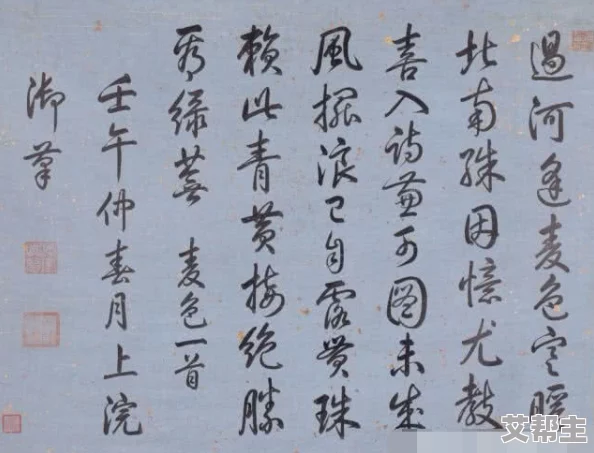 過河逢麥色寒暖
北南殊因憶尤教
喜入詩兼可圖未成
風擺浪已自露貫珠
賴此青黃接絕勝
綠蕪 麥色一首
壬午仲春月上浣
御筆
艾帮主